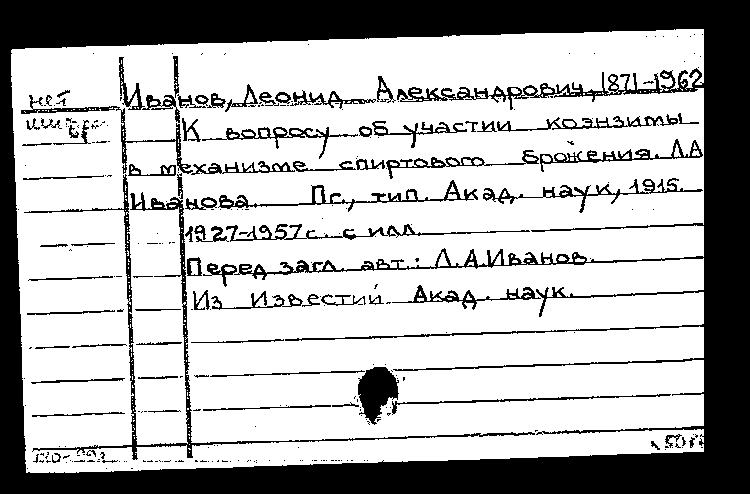 нет Иванов, Леонид Александрович, 1871-1962
шифра К вопросу об участии коэнзимы
в механизме спиртового брожения. Л.А
Иванова. Пг., тип. Акад. наук, 1915.
1927-1957с. с илл.
Перед загл. авт.: Л.А.Иванов.
Из Известий Акад. наук.